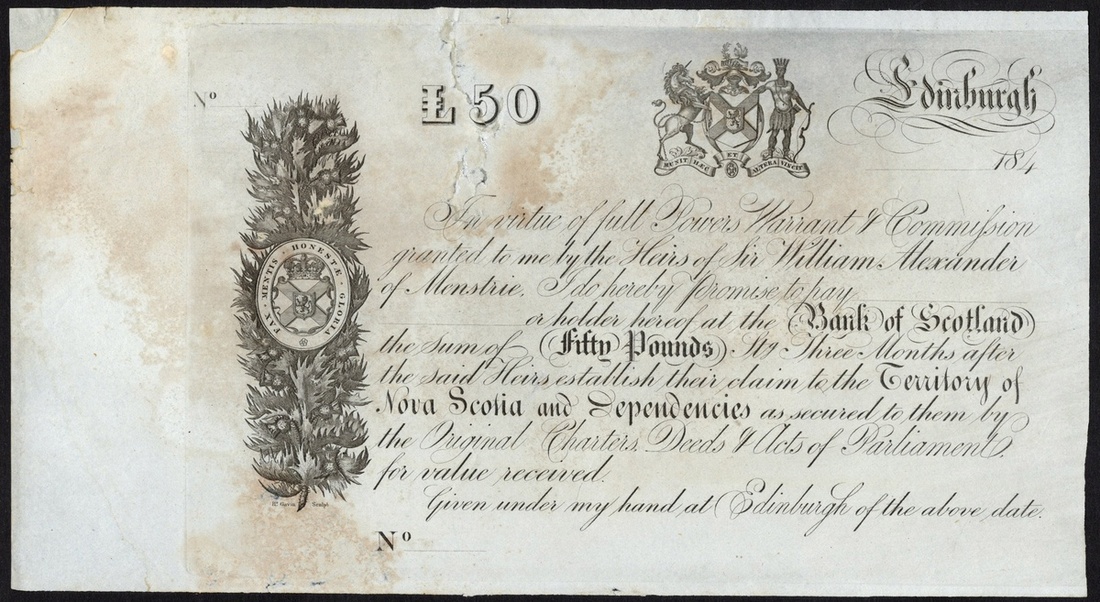 Nº
£50
Edinburgh
184
MUNIT HÆC ET ALTERA VINCIT
In virtue of full Powers Warrant & Commission
granted to me by the Heirs of Sir William Alexander
of Menstrie, I do hereby Promise to pay
or holder hereof at the Bank of Scotland
the sum of Fifty Pounds Stg Three Months after
the said Heirs establish their claim to the Territory of
Nova Scotia and Dependencies as secured to them by
the Original Charters, Deeds & Acts of Parliament
for value received.
Given under my hand at Edinburgh of the above date.
Nº
FAX MENTIS HONESTÆ GLORIA
Sculpt